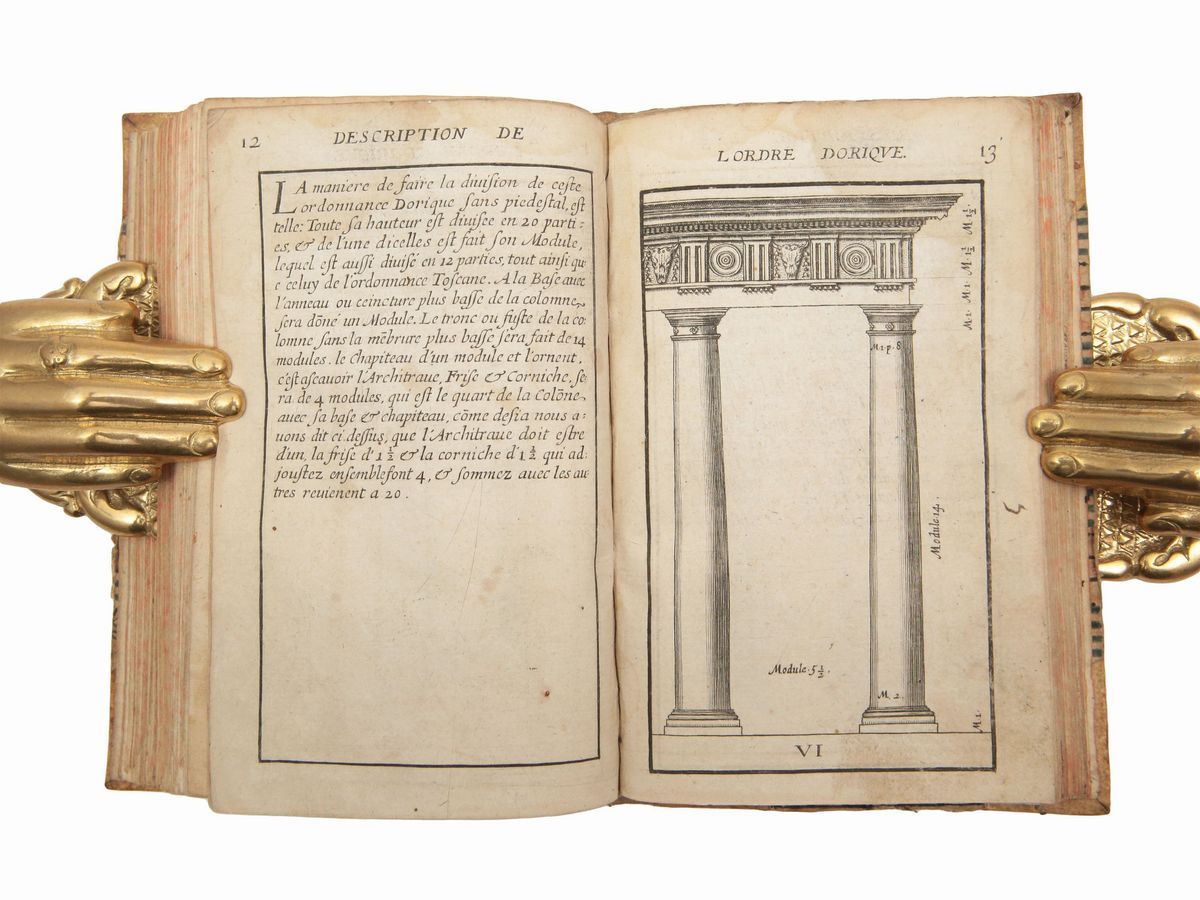 12 DESCRIPTION DE
LA maniere de faire la diuiſion de ceſte
ordonnance Dorique ſans piedestal, eſt
telle: Toute ſa hauteur eſt diuiſée en 20 parti-
es, & de l'une dicelles eſt fait ſon Module,
lequel eſt auſſi diuiſé en 12 parties, tout ainſi que
celuy de l'ordonnance Toſcane. A la Baſe auec
l'anneau ou ceincture plus baſſe de la colomne,
ſera dōné un Module. Le tronc ou fuſte de la co
lomne ſans la mēbrure plus baſſe ſera fait de 14
modules. le chapiteau d'un module et l'ornent.
c'eſt aſcauoir l'Architraue, Friſe & Corniche, ſe-
ra de 4 modules, qui eſt le quart de la Colōne,
auec ſa baſe & chapiteau, cōme deſia nous a-
uons dit ci deſſus, que l'Architraue doit eſtre
d'un, la friſe d'1 1/2 & la corniche d'1 1/2 qui ad-
jouſtez enſemble font 4, & ſommez auec les au
tres reuienent a 20.
LORDRE DORIQVE. 13
M. 1 1/2
M. 1 1/2
M. 1.
M. 1.
M. 1. p. 8.
Module. 14.
Module. 5 1/2.
M. 2.
M. 1.
VI